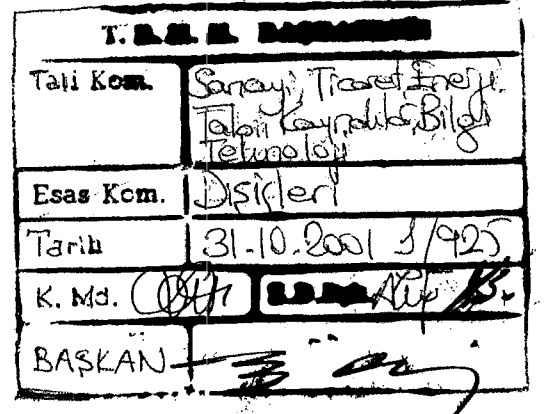 T. B. M. M. BAŞKANLIĞI
Tali Kom. Sanayi, Ticaret, Enerji
Tabii Kaynaklar, Bilgi
Teknoloji
Esas Kom. Dışişleri
Tarih 31.10.2001 1/925
K. Md.
BAŞKAN